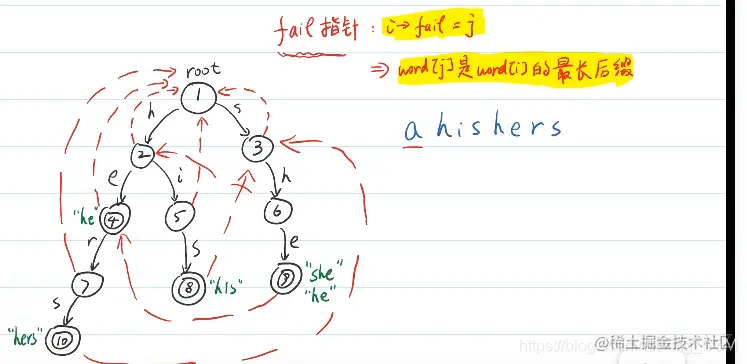 fail指针：i→fail = j
⇒ word[j]是word[i]的最长后缀
root
1
h
s
a h i s h e r s
2
3
e
i
h
"he"
4
5
6
r
s
e
7
8
"his"
9
"she"
"he"
s
"hers"
10
https://blog.
@稀土掘金技术社区